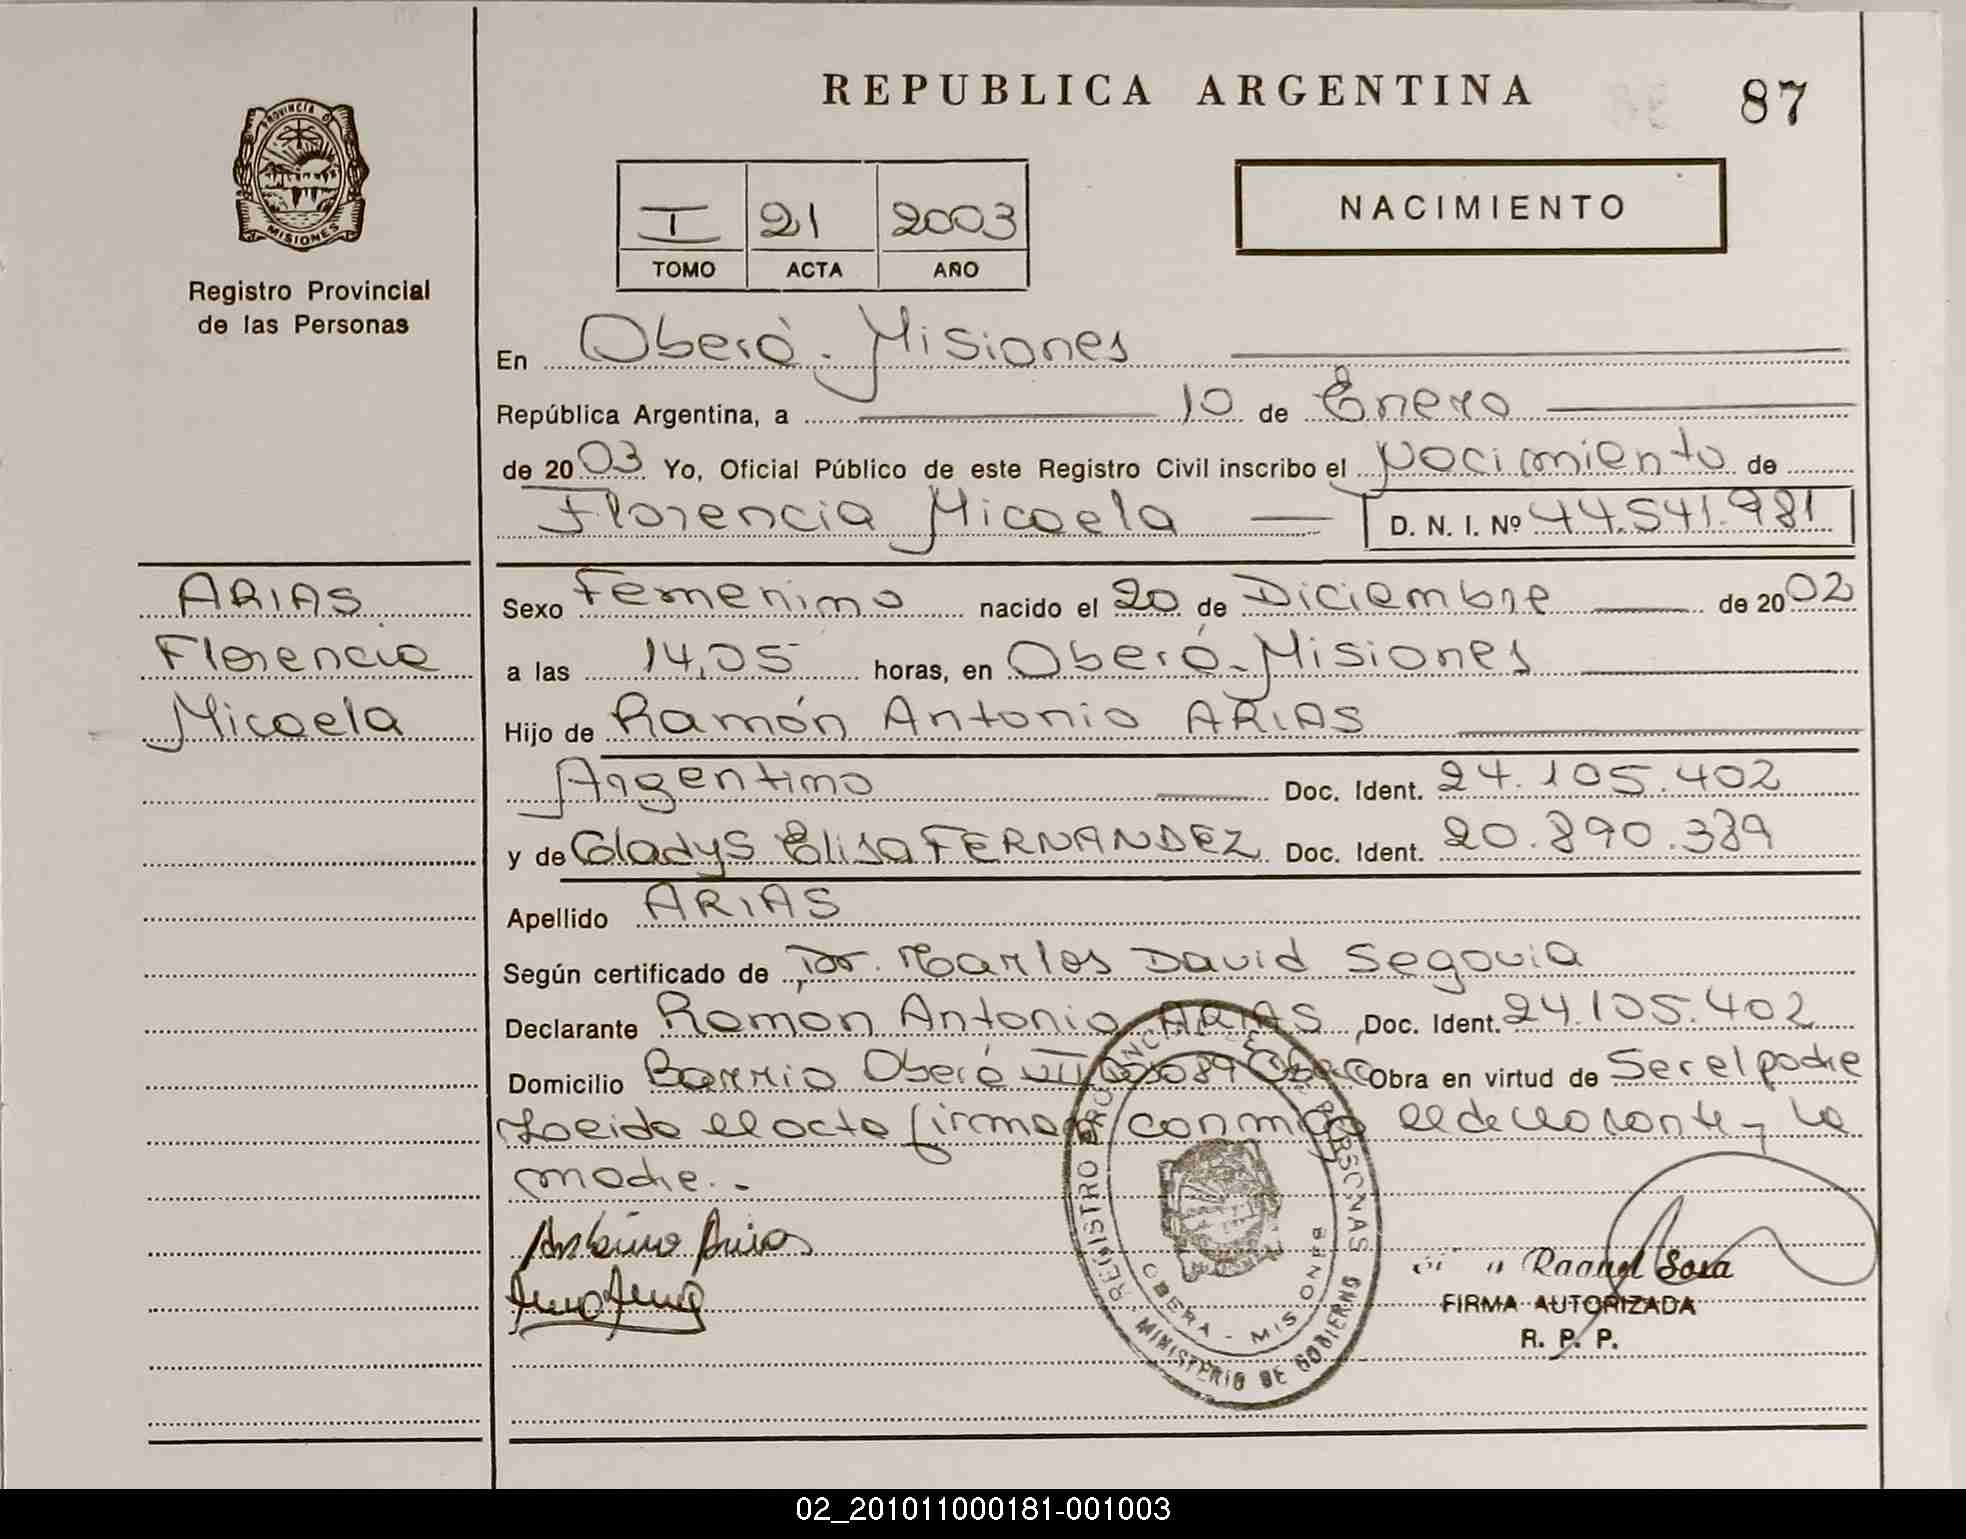 REPUBLICA ARGENTINA
87
PROVINCIA D
MISIONES
Registro Provincial
de las Personas
I 21 2003
TOMO ACTA AÑO
NACIMIENTO
En Oberá - Misiones
República Argentina, a 10 de Enero
de 2003 Yo, Oficial Público de este Registro Civil inscribo el nacimiento de
Florencia Micaela D. N. I. Nº 44.541.981
ARIAS
Florencia
Micaela
Sexo Femenino nacido el 20 de Diciembre de 2002
a las 14,05 horas, en Oberá - Misiones
Hijo de Ramón Antonio ARIAS
Argentino Doc. Ident. 24.105.402
y de Gladys Elisa FERNANDEZ Doc. Ident. 20.890.339
Apellido ARIAS
Según certificado de Dr. Carlos David Segovia
Declarante Ramon Antonio ARIAS, Doc. Ident. 24.105.402
Domicilio Barrio Oberá VII 089 Obra en virtud de Ser el padre
Leida el acta firma conmigo el declarante y la
madre.-
Antonio Arias
Sosa
FIRMA AUTORIZADA
R. P. P.
REGISTRO PROVINCIAL DE PERSONAS
OBERA - MISIONES
MINISTERIO DE GOBIERNO
02_201011000181-001003